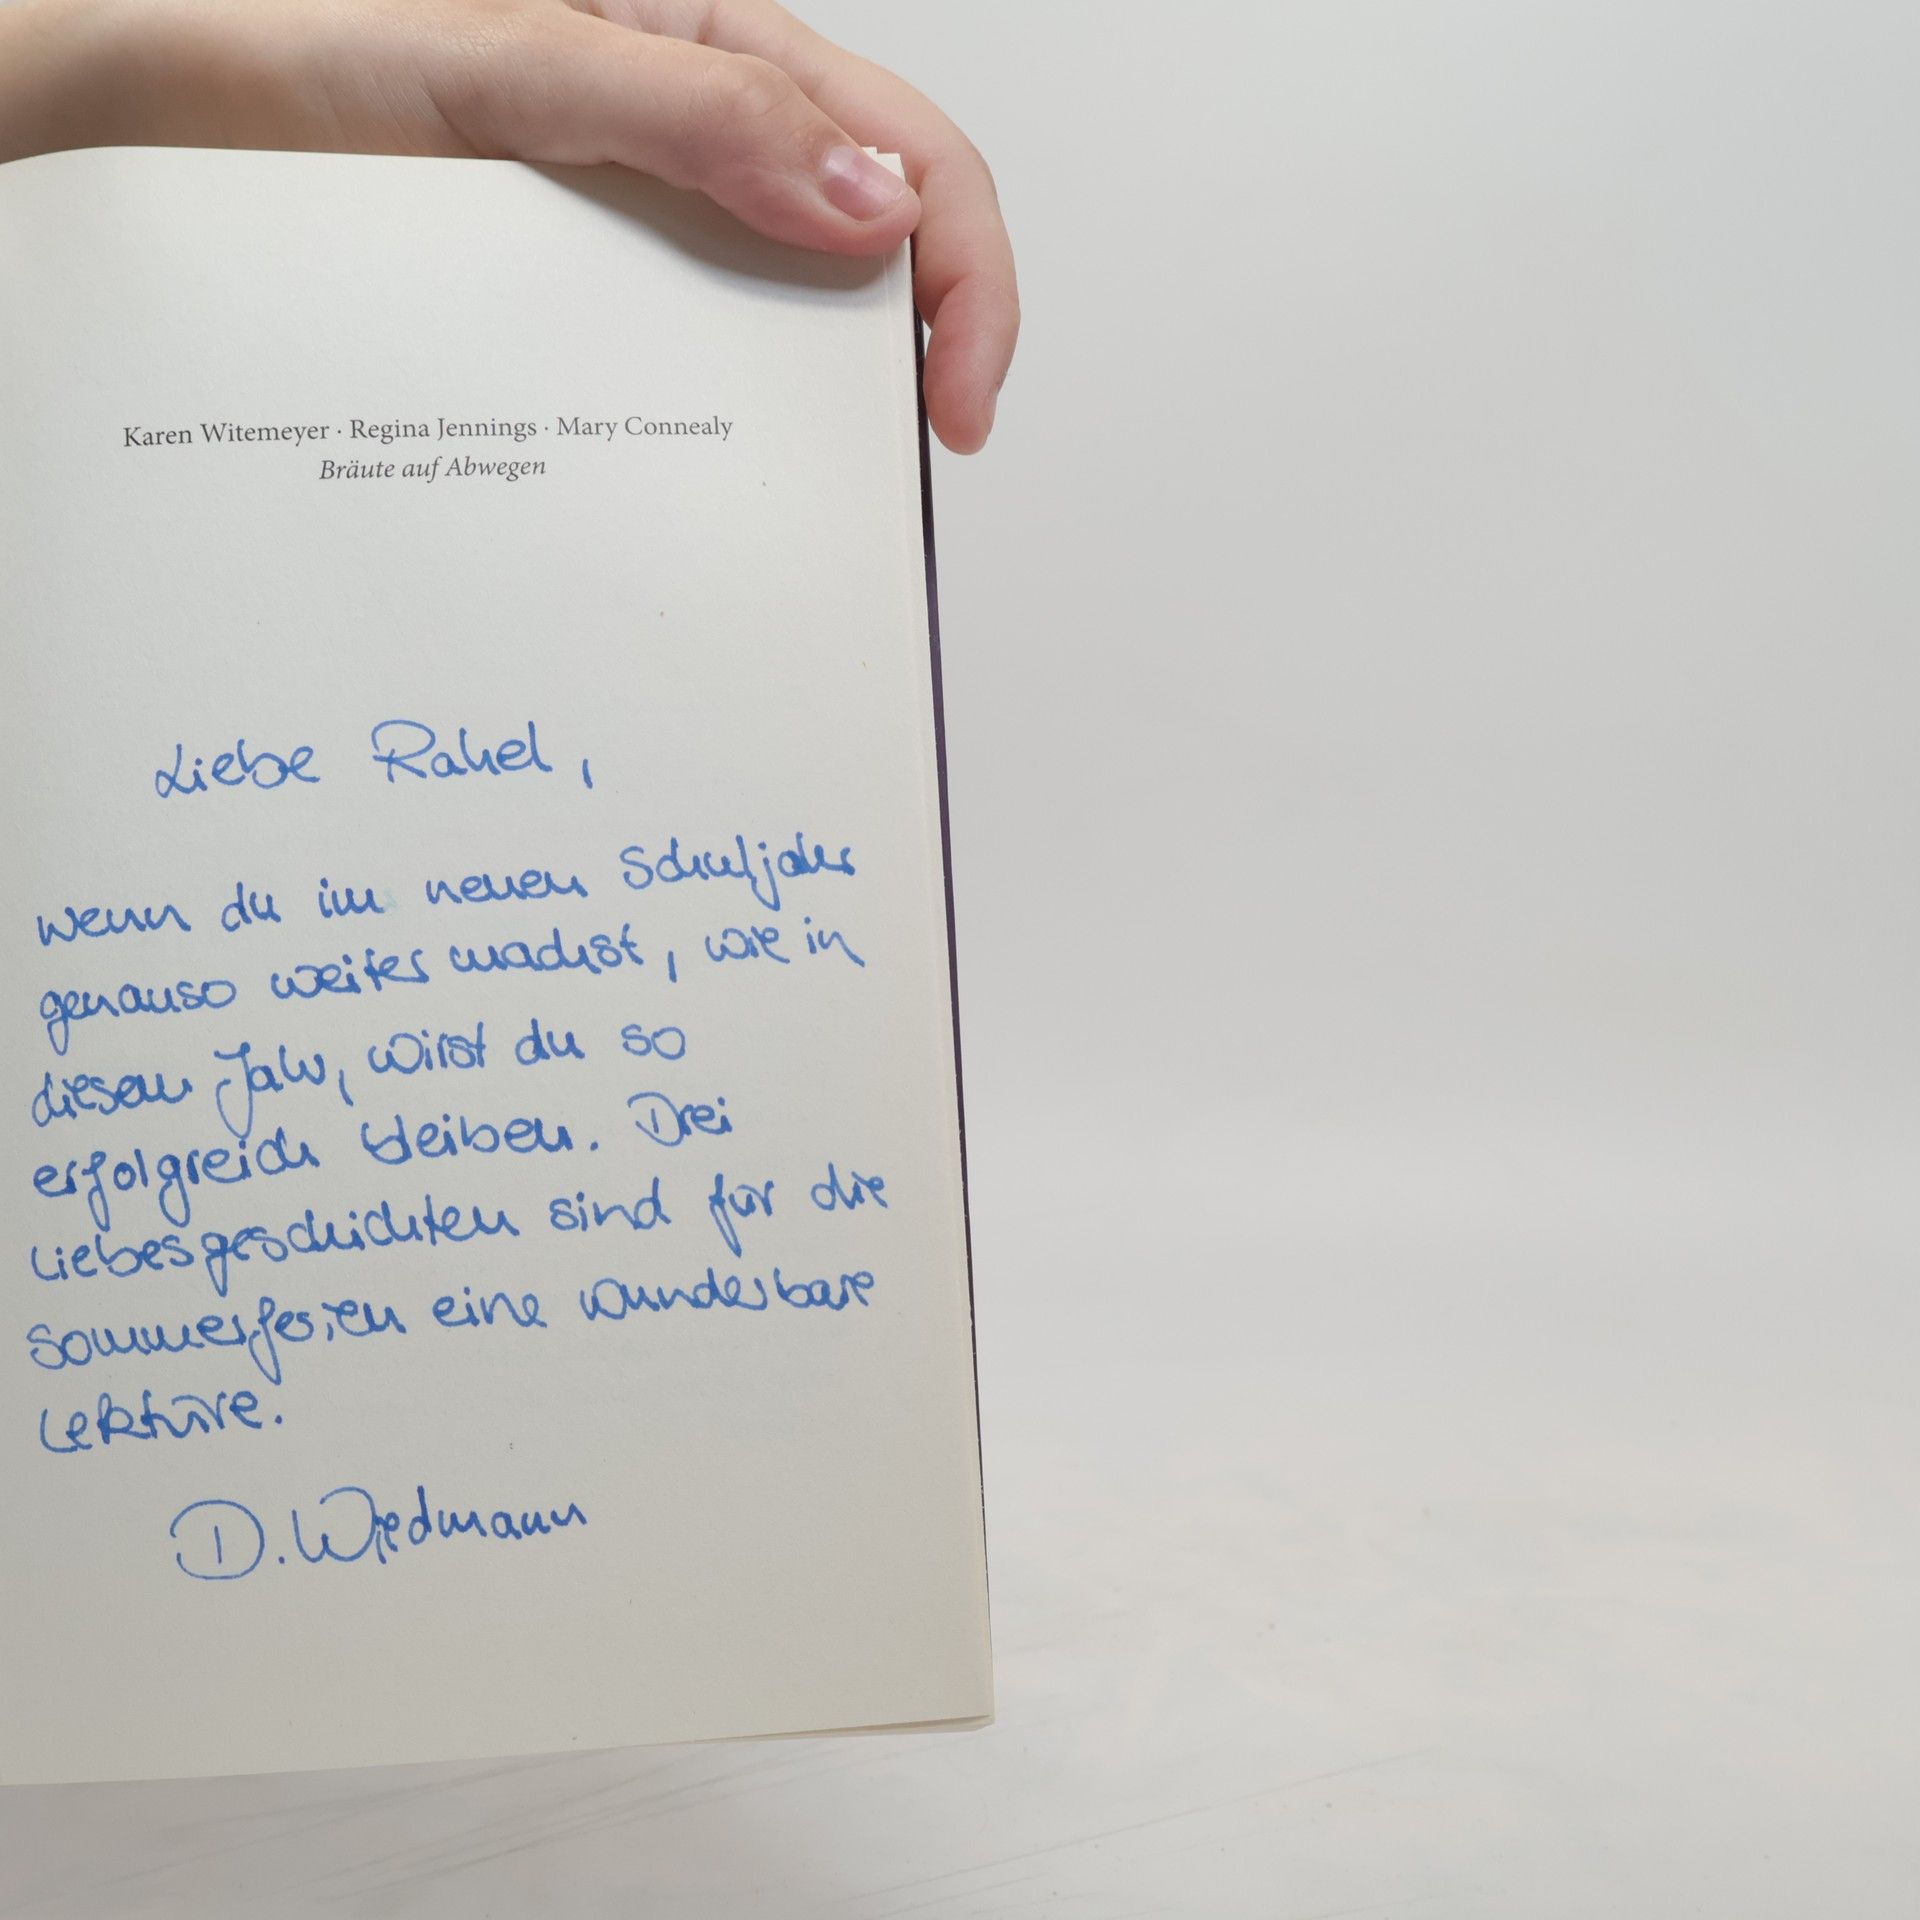 Karen Witemeyer · Regina Jennings · Mary Connealy
Bräute auf Abwegen
Liebe Rahel,
wenn du im neuen Schuljahr
genauso weiter machst, wie in
diesem Jahr, wirst du so
erfolgreich bleiben. Drei
Liebesgeschichten sind für die
Sommerferien eine wunderbare
Lektüre.
D. Wiedmann